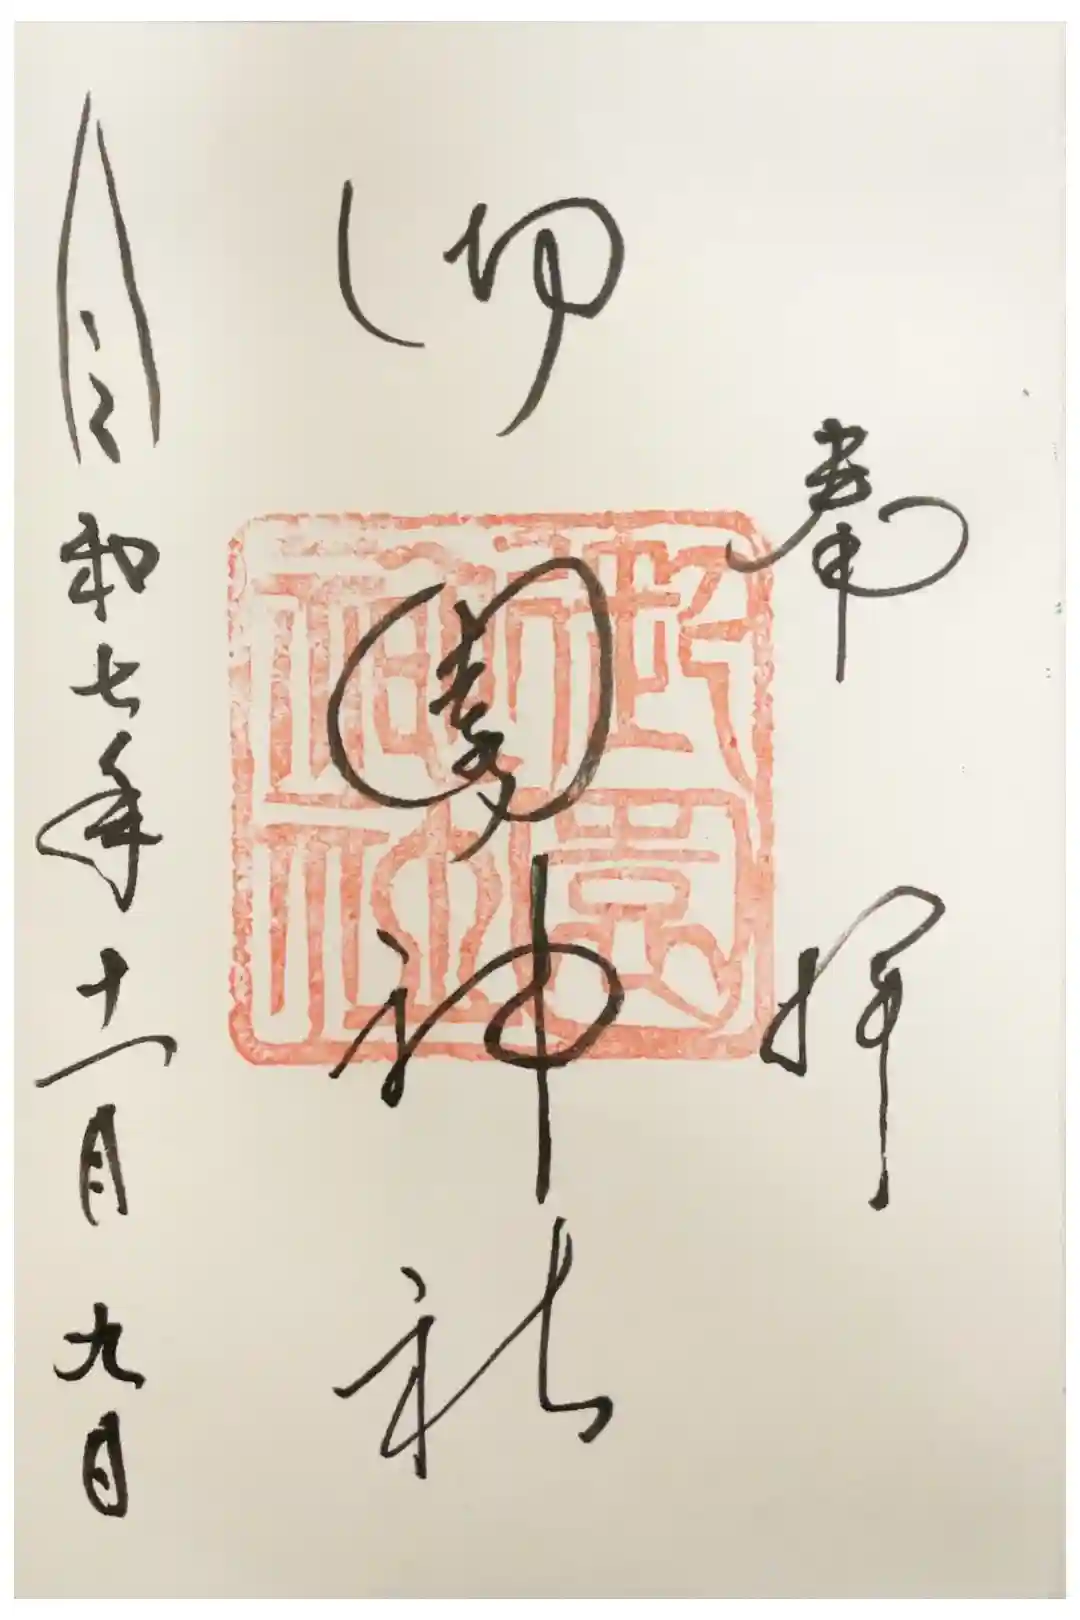 奉拝
御園神社
令和七年十一月九日